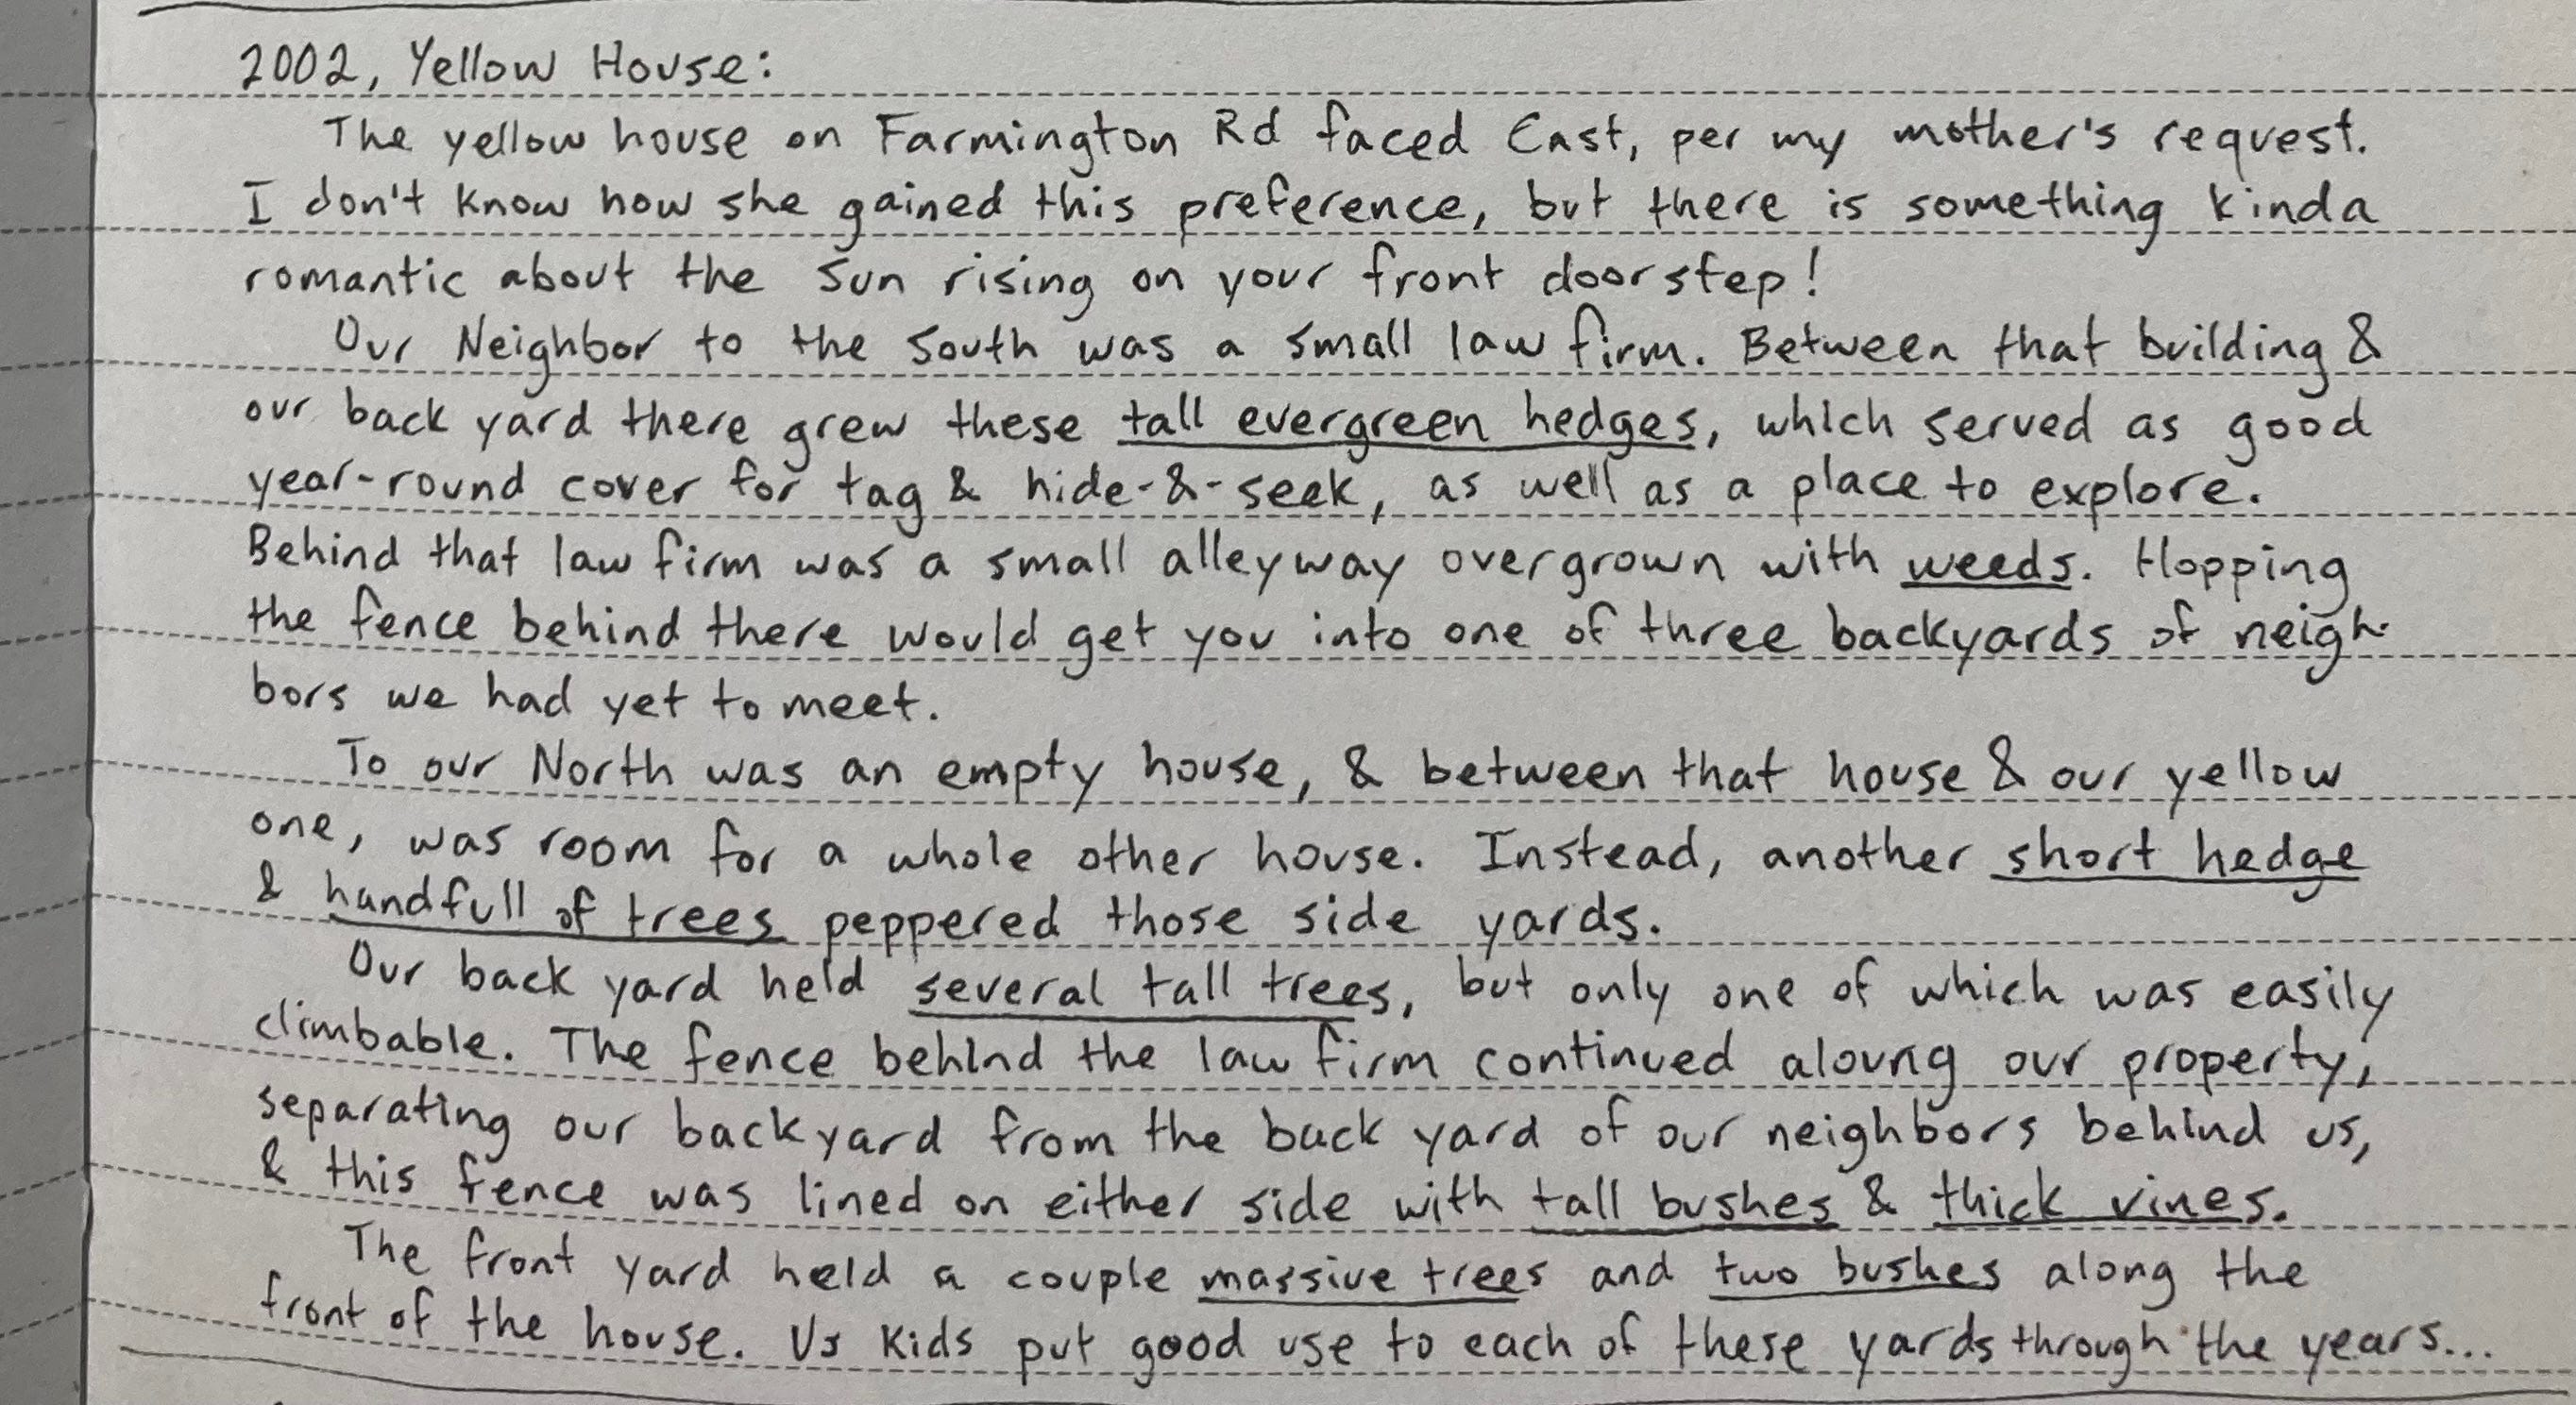 2002, Yellow House:
The yellow house on Farmington Rd faced East, per my mother's request.
I don't know how she gained this preference, but there is something kinda
romantic about the sun rising on your front doorstep!
Our Neighbor to the South was a small law firm. Between that building &
our back yard there grew these tall evergreen hedges, which served as good
year-round cover for tag & hide-&-seek, as well as a place to explore.
Behind that law firm was a small alleyway overgrown with weeds. Hopping
the fence behind there would get you into one of three backyards of neigh-
bors we had yet to meet.
To our North was an empty house, & between that house & our yellow
one, was room for a whole other house. Instead, another short hedge
& handfull of trees peppered those side yards.
Our back yard held several tall trees, but only one of which was easily
climbable. The fence behind the law firm continued aloung our property,
separating our backyard from the back yard of our neighbors behind us,
& this fence was lined on either side with tall bushes & thick vines.
The front yard held a couple massive trees and two bushes along the
front of the house. Us kids put good use to each of these yards through the years...